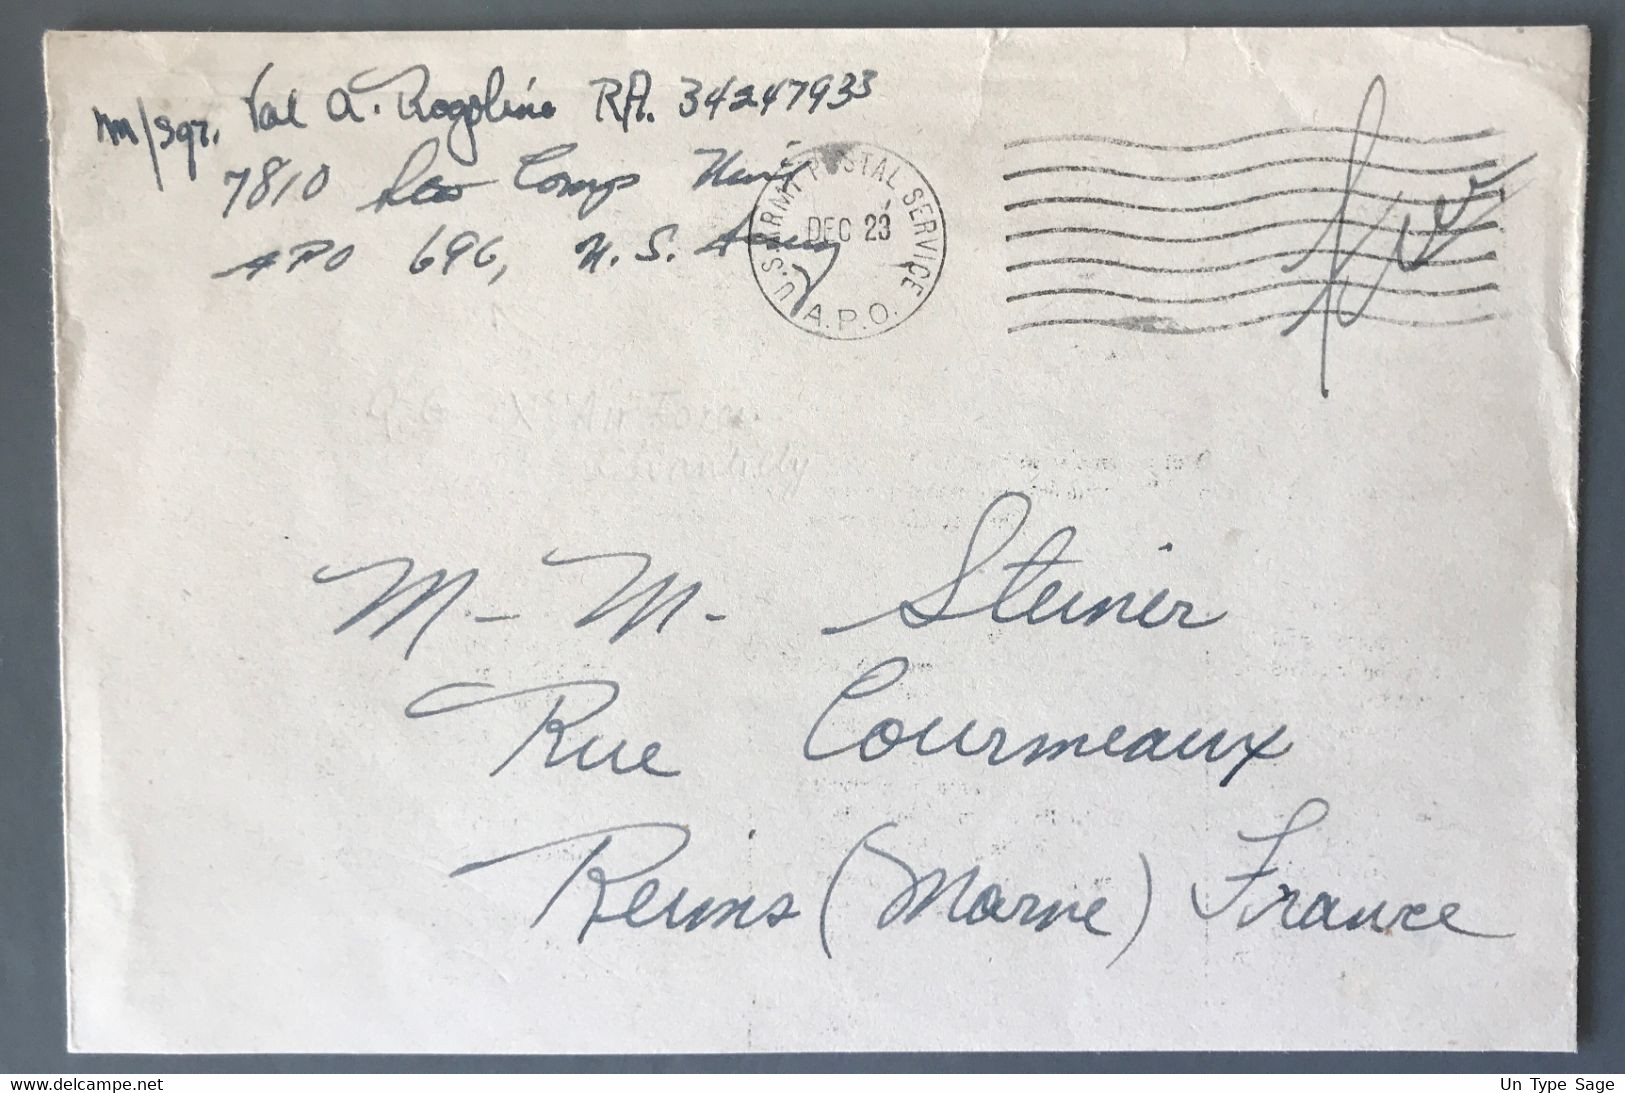 M/Sgt. Val A. Rogolino RA. 34247933
7810 Comp Unit
APO 696, U.S. Army
U.S. ARMY POSTAL SERVICE
DEC 23
A.P.O.
Free
Air Force
Chantilly
M - M - Steiner
Rue Courmeaux
Reims (Marne) France
www.delcampe.net
Un Type Sage